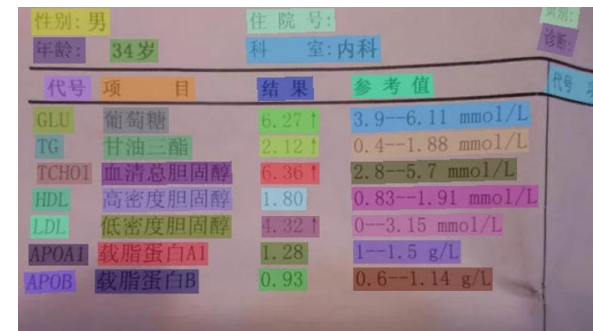 性别:男 住院号: 
年龄: 34岁 科 室:内科 诊断:
代号 项 目 结 果 参 考 值 代号
GLU 葡萄糖 6.27↑ 3.9--6.11 mmol/L
TG 甘油三酯 2.12↑ 0.4--1.88 mmol/L
TCHO1 血清总胆固醇 6.36↑ 2.8--5.7 mmol/L
HDL 高密度胆固醇 1.80 0.83--1.91 mmol/L
LDL 低密度胆固醇 4.32↑ 0--3.15 mmol/L
APOA1 载脂蛋白A1 1.28 1--1.5 g/L
APOB 载脂蛋白B 0.93 0.6--1.14 g/L